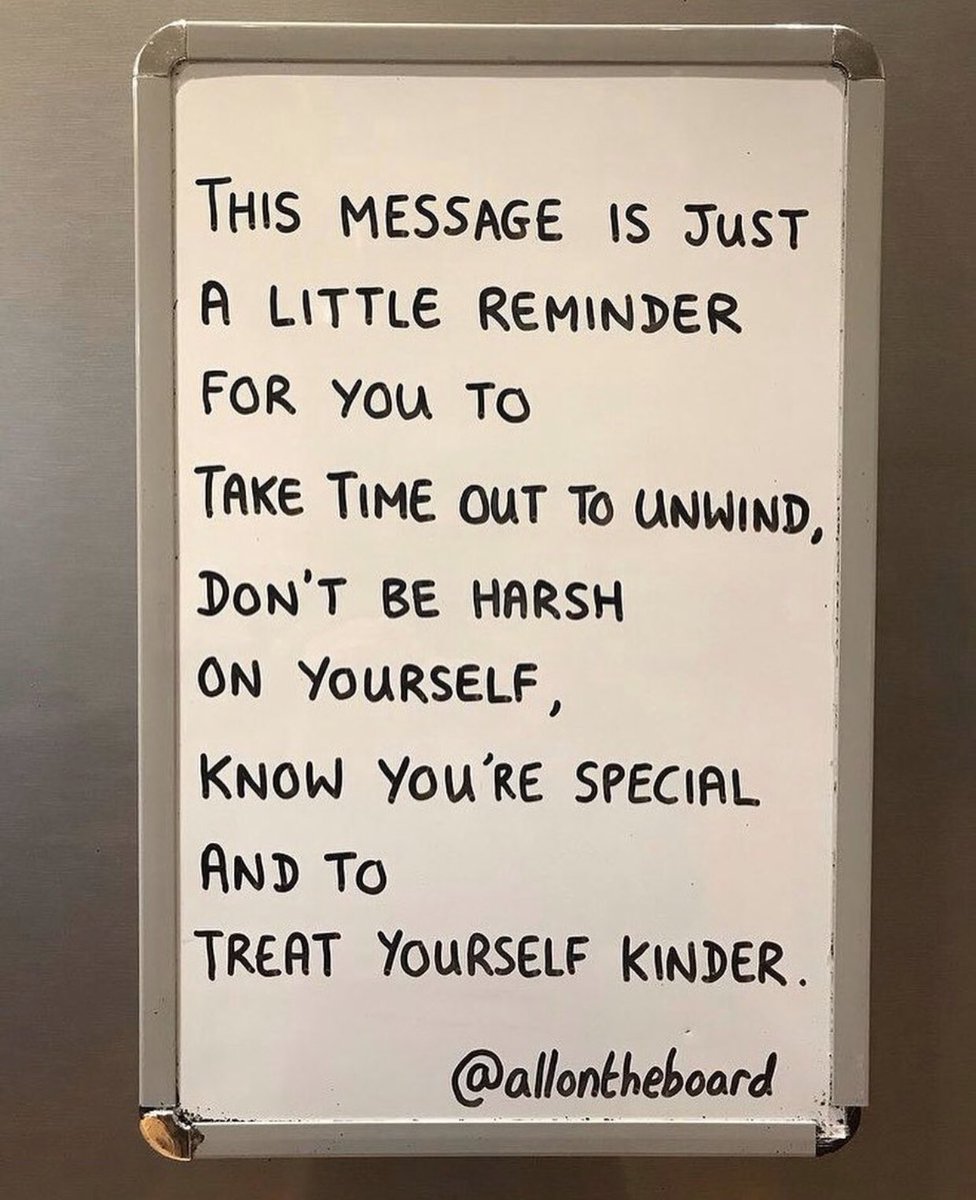 THIS MESSAGE IS JUST
A LITTLE REMINDER
FOR YOU TO
TAKE TIME OUT TO UNWIND,
DON'T BE HARSH
ON YOURSELF,
KNOW YOU'RE SPECIAL
AND TO
TREAT YOURSELF KINDER.
@allontheboard